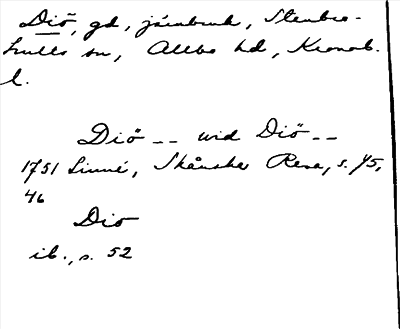 Diö, gd, järnbruk, Stenbro-
hults sn, Allbo hd, Kronob.
l.
Diö -- wid Diö --
1751 Linné, Skånska Resa, s. 45,
46
Dio
ib., s. 52